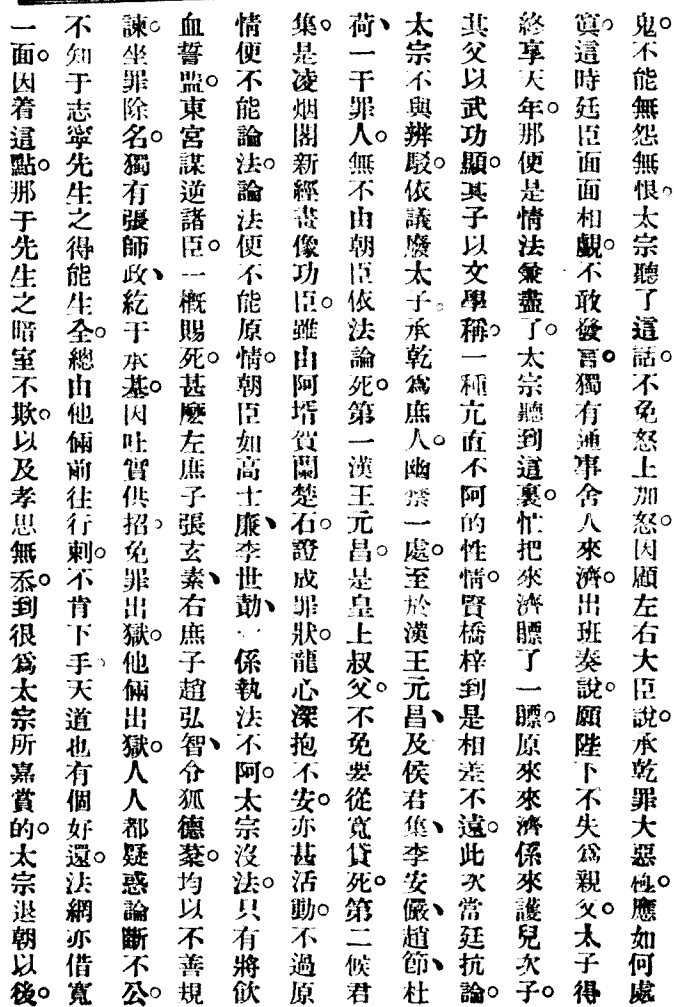 鬼。不能無怨無恨。太宗聽了這話。不免怒上加怒。因顧左右大臣說。承乾罪大惡極。應如何處
寘。這時廷臣面面相覷。不敢發言。獨有通事舍人來濟。出班奏說。願陛下不失爲親父。太子得
終享天年。那便是情法兼盡了。太宗聽到這裏。忙把來濟瞟了一瞟。原來來濟係來護兒次子。
其父以武功顯。其子以文學稱。一種亢直不阿的性情。賢橋梓到是相差不遠。此次當廷抗論。
太宗不與辨駁。依議廢太子承乾爲庶人。幽禁一處。至於漢王元昌、及侯君集、李安儼、趙節、杜
荷、一干罪人。無不由朝臣依法論死。第一漢王元昌。是皇上叔父。不免要從寬貸死。第二候君
集。是凌烟閣新經畫像功臣。雖由阿壻賀蘭楚石。證成罪狀。龍心深抱不安。亦甚活動。不過原
情便不能論法。論法便不能原情。朝臣如高士廉、李世勣、一係執法不阿。太宗沒法。只有將飲
血誓盟。東宮謀逆諸臣。一槪賜死。甚麽左庶子張玄素、右庶子趙弘智、令狐德棻。均以不善規
諫。坐罪除名。獨有張師政、紇于承基。因吐實供招。免罪出獄。他倆出獄。人人都疑惑論斷不公。
不知于志寧先生之得能生全。總由他倆前往行刺。不肯下手。天道也有個好還。法網亦借寬
一面。因着這點。那于先生之暗室不欺。以及孝思無忝。到很爲太宗所嘉賞的。太宗退朝以後。